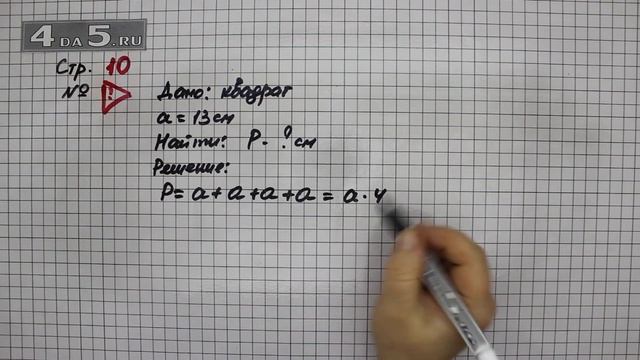 4 DA 5.RU
Стр. 10
№ !
Дано: квадрат
a = 13 см
Найти: P - ? см
Решение:
P = a + a + a + a = a · 4